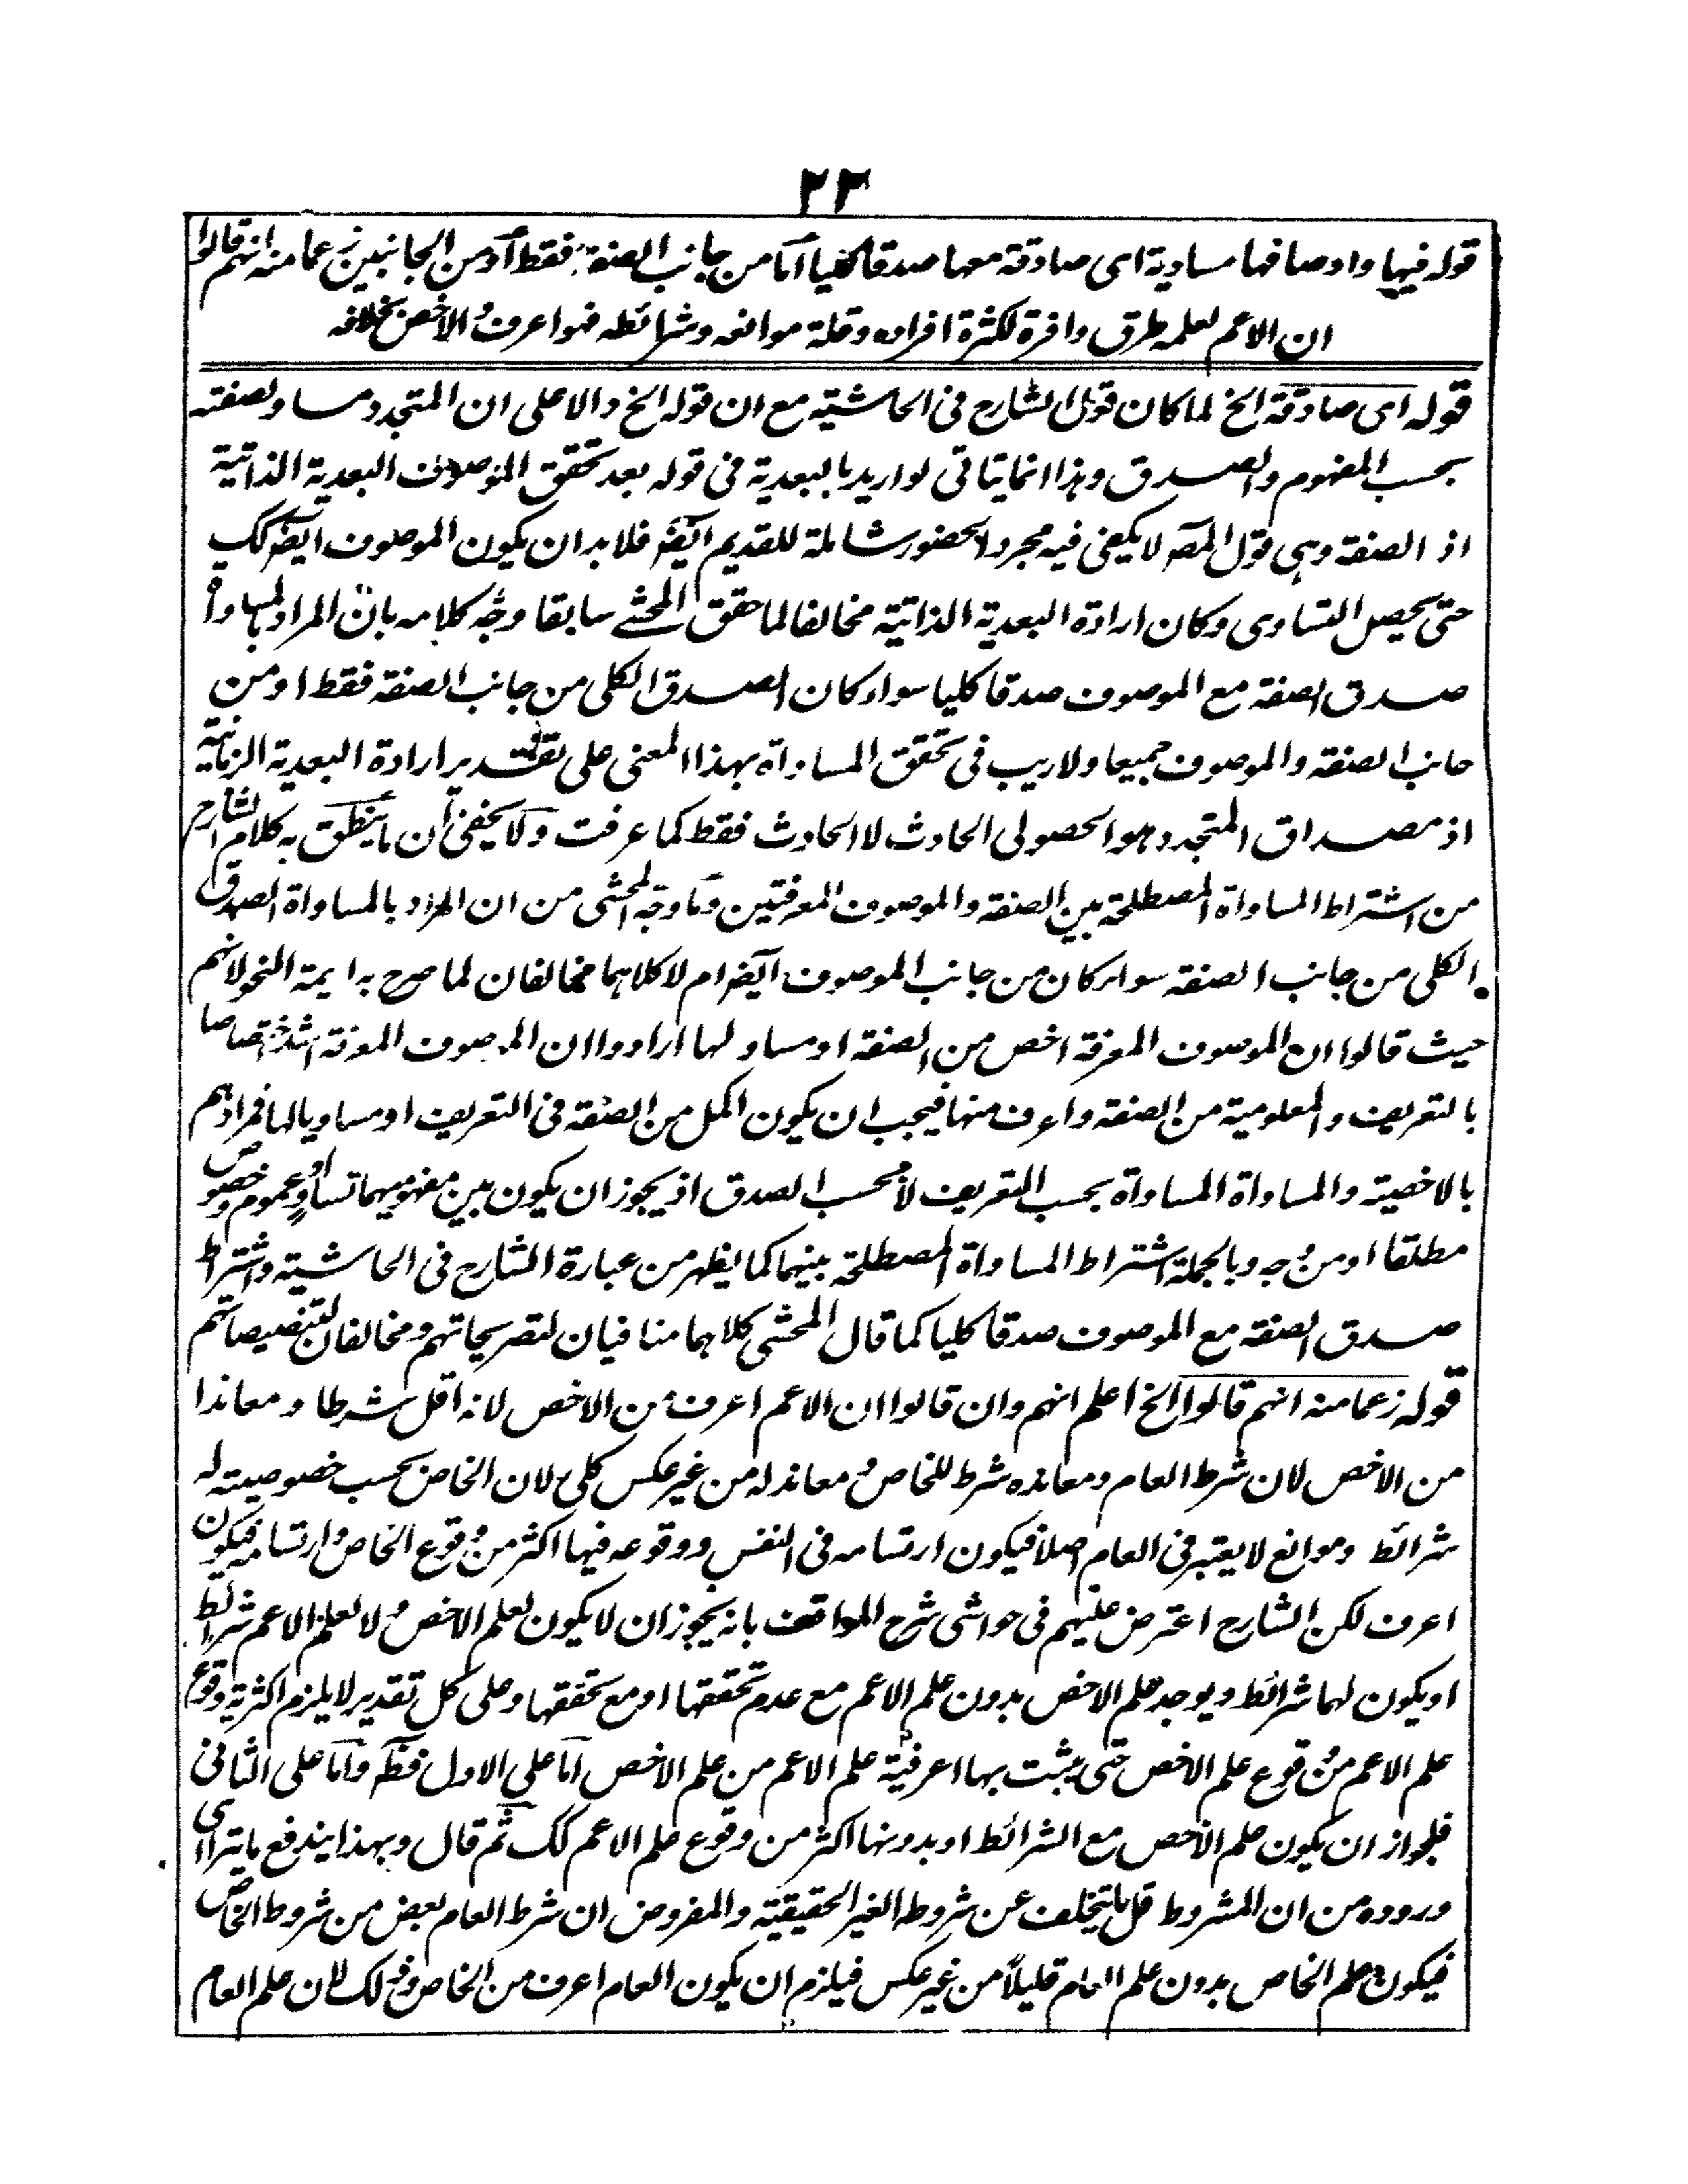 ٢٣
قوله فيها واوصافها مساوية اى صادقة معها صدقا كليا اما من جانب الصفة فقط او من الجانبين زعما منه انهم قالوا
ان الاعم لعلمه طرق وافرة لكثرة افراده وقلة موانعه وشرائطه فهو اعرف والاخص بخلافه
قوله اى صادقة الخ لما كان قول الشارح فى الحاشية مع ان قوله الخ دالا على ان المتجدد مساو لصفته
بحسب المفهوم والصدق وهذا انما يتاتى لو اريد بالبعدية فى قوله بعد تحقق الموصوف البعدية الذاتية
اذ الصفة وهى قول المصـ لا يكفى فيه مجرد الحضور شاملة للقديم ايضـ فلا بد ان يكون الموصوف ايضـ كك
حتى يحصل التساوى وكان ارادة البعدية الذاتية مخالفا لما حقق المحشے سابقا وجّه كلامه بان المراد بالمساواة
صدق الصفة مع الموصوف صدقا كليا سواء كان الصدق الكلى من جانب الصفة فقط او من
جانب الصفة والموصوف جميعا ولا ريب فى تحقق المساواة بهذا المعنى على تقدير ارادة البعدية الزمانية
اذ مصداق المتجدد هو الحصولى الحادث لا الحادث فقط كما عرفت ولا يخفى ان ما ينطق به كلام الشارح
من اشتراط المساواة المصطلحة بين الصفة والموصوف المعرفتين وما وجّه المحشى من ان المراد بالمساواة الصدق
الكلى من جانب الصفة سواء كان من جانب الموصوف ايضـ ام لا كلاهما مخالفان لما صرح به ايمة النحو لانهم
حيث قالوا ان الموصوف المعرفة اخص من الصفة او مساو لها ارادوا ان الموصوف المعرفة اشد اختصاصا
بالتعريف والمعلومية من الصفة واعرف منها فيجب ان يكون اكمل من الصفة فى التعريف او مساويا لها فمرادهم
بالاخصية والمساواة المساواة بحسب التعريف لا بحسب الصدق اذ يجوز ان يكون بين مفهوميهما تساوٍ او عموم وخصوص
مطلقا او من وجه وبالجملة اشتراط المساواة المصطلحة بينهما كما يظهر من عبارة الشارح فى الحاشية واشتراط
صدق الصفة مع الموصوف صدقا كليا كما قال المحشى كلاهما منافيان لتصريحاتهم ومخالفان لتنصيصاتهم
قوله زعما منه انهم قالوا الخ اعلم انهم وان قالوا ان الاعم اعرف من الاخص لانه اقل شرطا و معاندا
من الاخص لان شرط العام ومعانده شرط للخاص ومعاند له من غير عكس كلى لان الخاص بحسب خصوصيته له
شرائط وموانع لا يعتبر فى العام اصلا فيكون ارتسامه فى النفس ووقوعه فيها اكثر من وقوع الخاص وارتسامه فيكون
اعرف لكن الشارح اعترض عليهم فى حواشى شرح المواقف بانه يجوز ان لا يكون لعلم الاخص ولا لعلم الاعم شرائط
او يكون لهما شرائط ويوجد علم الاخص بدون علم الاعم مع عدم تحققها او مع تحققها وعلى كل تقدير لا يلزم اكثرية وقوع
علم الاعم من وقوع علم الاخص حتى يثبت بها اعرفية علم الاعم من علم الاخص اما على الاول فظـ واما على الثانى
فلجواز ان يكون علم الاخص مع الشرائط او بدونها اكثر من وقوع علم الاعم كك ثم قال وبهذا يندفع ما يتراأى
وروده من ان المشروط قل ما يتخلف عن شروطه الغير الحقيقية والمفروض ان شرط العام بعض من شروط الخاص
فيكون علم الخاص بدون علم العام قليلاً من غير عكس فيلزم ان يكون العام اعرف من الخاص وذلك لان علم العام